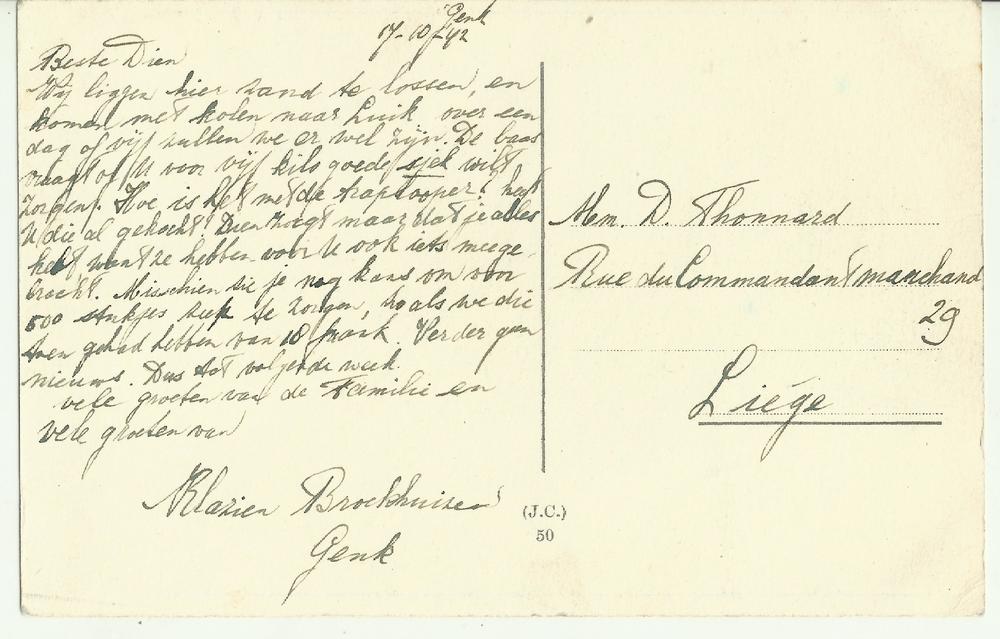 Genk
17-10-42
Beste Dien
Wij liggen hier zand te lossen, en
komen met kolen naar Luik over een
dag of vijf zullen we er wel zijn. De baas
vraagt of U voor vijf kilo goede sjek wilt
zorgen. Hoe is het met de traplooper? heeft
U die al gekocht? Dien zorgt maar dat je alles
hebt, want ze hebben voor U ook iets meege-
bracht. Misschien zie je nog kans om voor
500 stukjes zeep te zorgen, zoals we die
toen gehad hebben van 18 frank. Verder geen
nieuws. Dus tot volgende week.
vele groeten van de Familie en
vele groeten van
Klazien Broekhuizen
Genk
(J.C.)
50
Mem. D. Thonnard
Rue du Commandant marchand
29
Liége